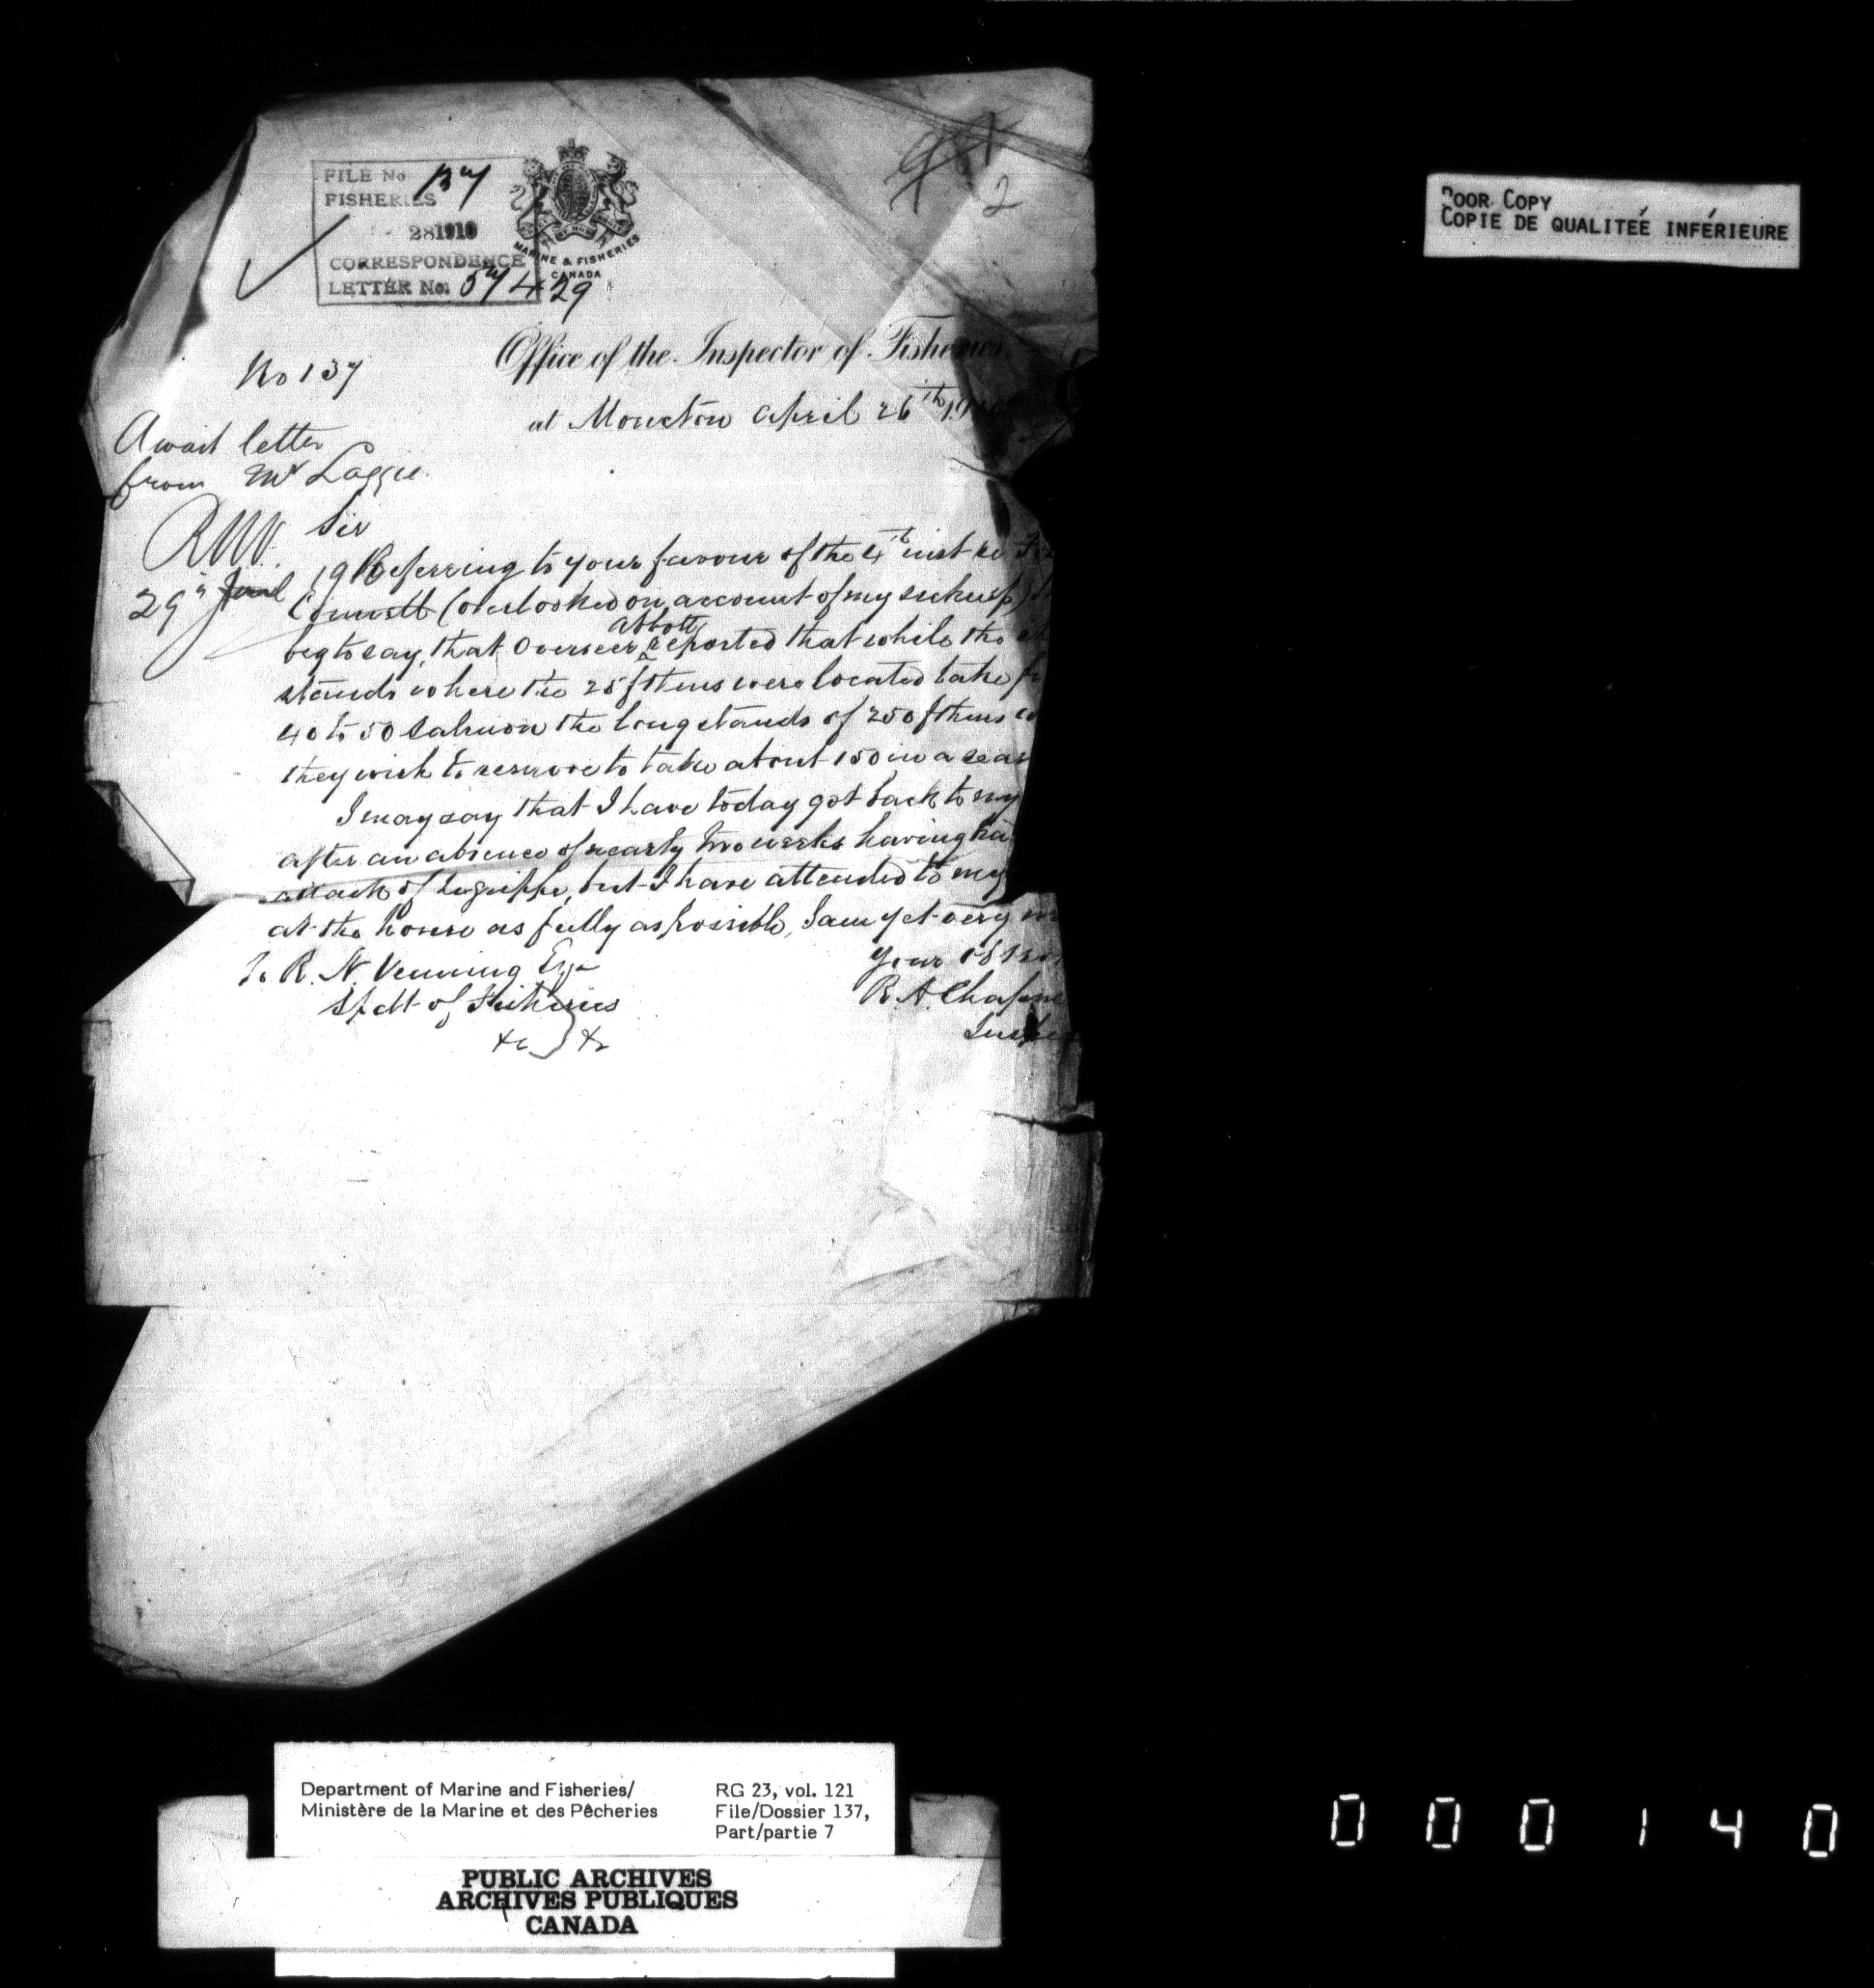 FILE No 137
FISHERIES
281910
CORRESPONDENCE
LETTER No. 57429
MARINE & FISHERIES
CANADA
2
POOR COPY
COPIE DE QUALITEÉ INFÉRIEURE
Office of the Inspector of Fisheries.
No 137
at Moncton April 26th 1910
Await letter
from Mr Loggie.
RNV.
29th
Sir
Referring to your favour of the 4th inst re
(overlooked on account of my sickness)
beg to say, that Overseer Abbott reported that while the
stands where the 25 fthms were located take
40 to 50 salmon the long stands of 250 fthms
they wish to reserve to take about 150 in a
I may say that I have today got back to my
after an absence of nearly two weeks having
attack of Lagrippe, but I have attended to my
at the house as fully as possible, I am yet very
Your
To R. N. Venning Esq
R. A. Chapm
Spdt of Fisheries
&c &c
Department of Marine and Fisheries/
Ministère de la Marine et des Pêcheries
RG 23, vol. 121
File/Dossier 137,
Part/partie 7
PUBLIC ARCHIVES
ARCHIVES PUBLIQUES
CANADA
000140